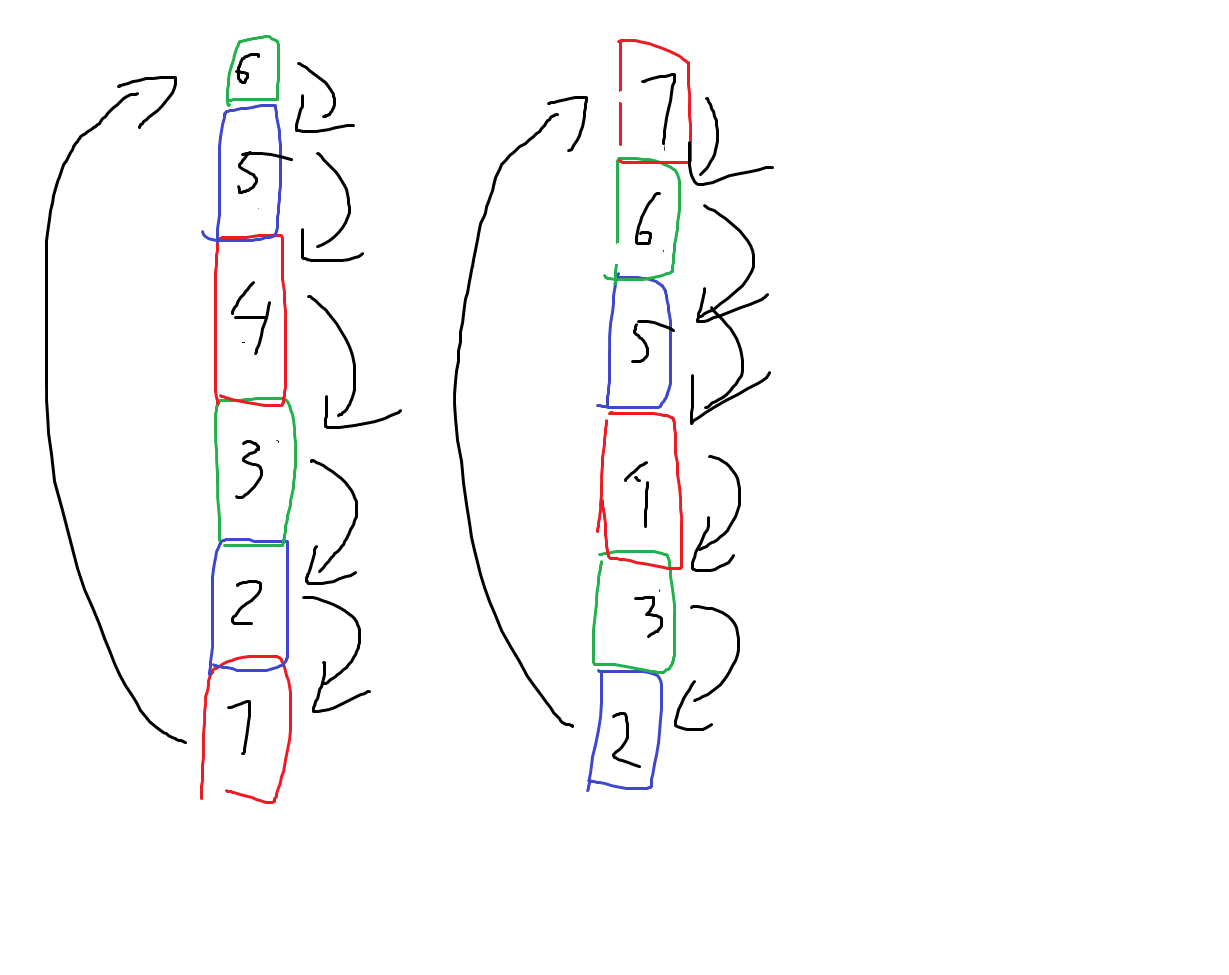 6
5
4
3
2
1
7
6
5
4
3
2